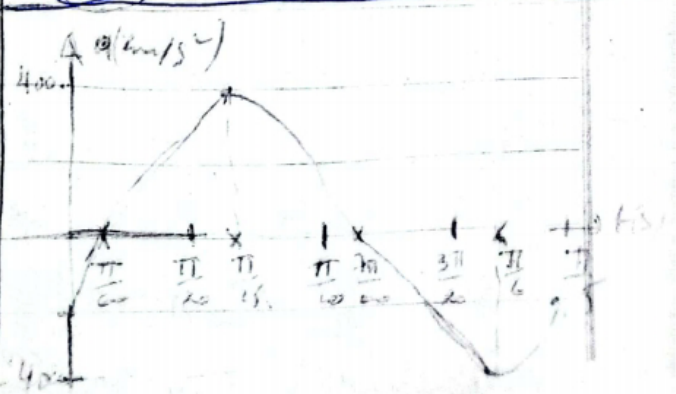 a(cm/s²)
400
t(s)
π/60 π/20 π/15 π/10 7π/60 3π/20 π/6 π/5
-400